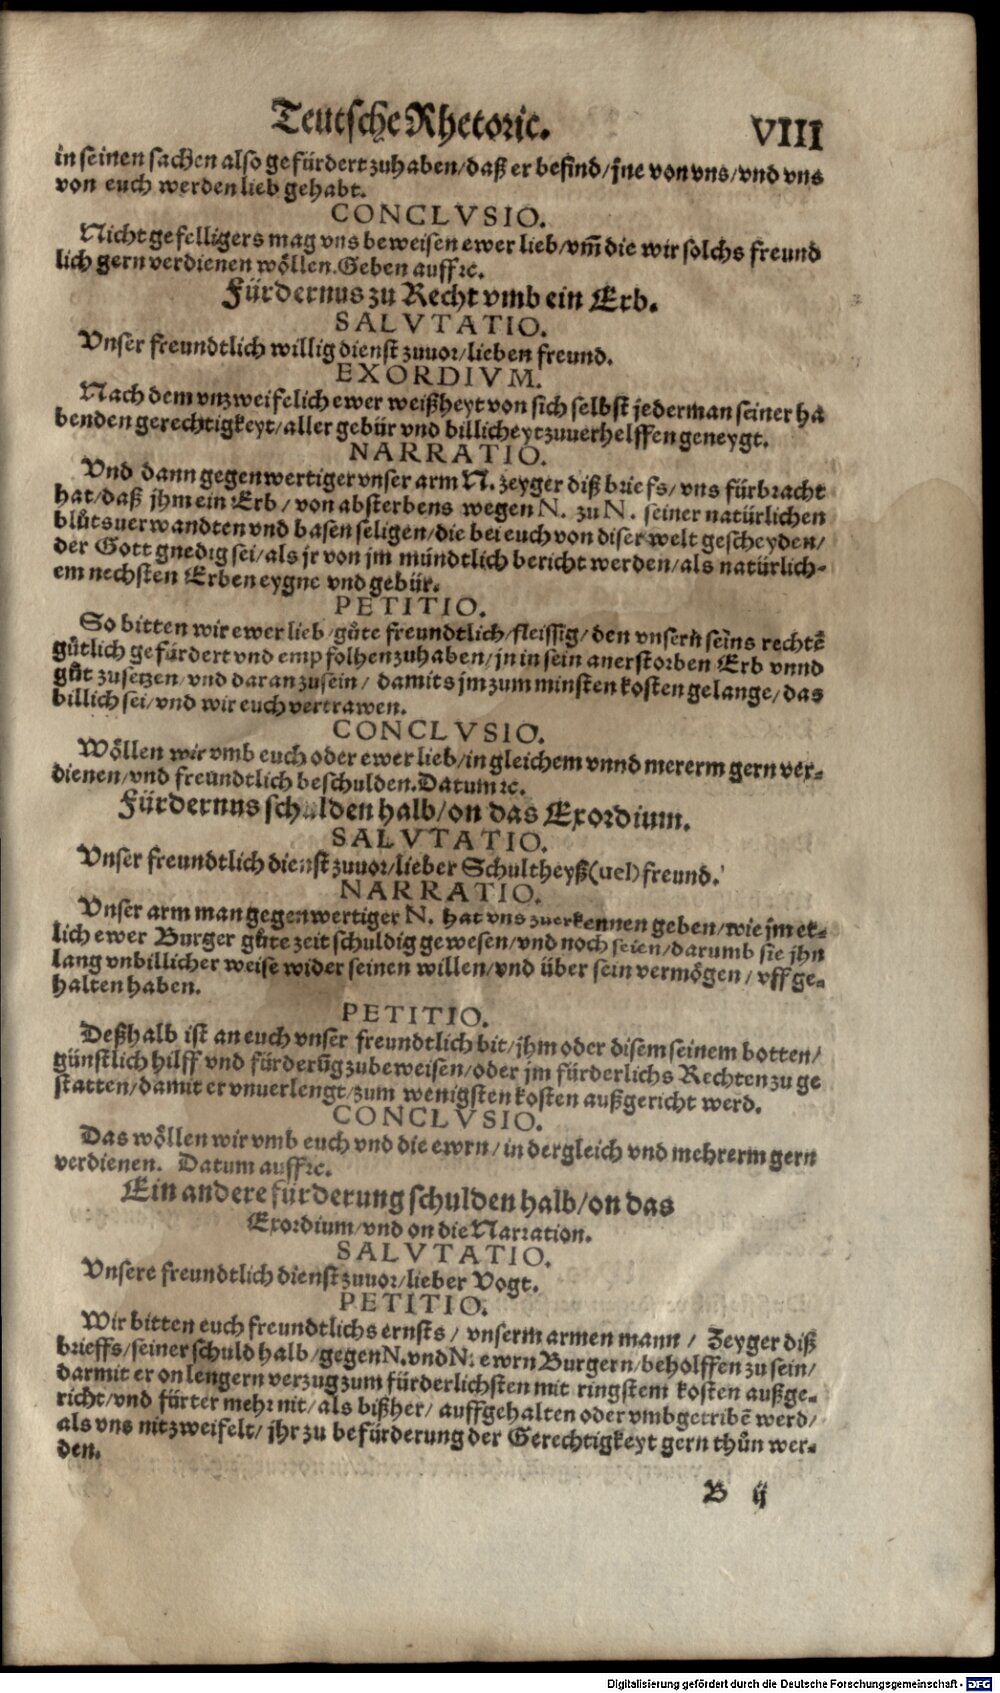 Teutsche Rhetoric. VIII
in seinen sachen also gefürdert zuhaben/daß er befind/jne von vns/vnd vns
von euch werden lieb gehabt.
CONCLVSIO.
Nicht gefelligers mag vns beweisen ewer lieb/vm̃ die wir solchs freund
lich gern verdienen wöllen. Geben auff ꝛc.
Fürdernus zu Recht vmb ein Erb.
SALVTATIO.
Vnser freundtlich willig dienst zuuor/lieben freund.
EXORDIVM.
Nach dem vnzweifelich ewer weißheyt von sich selbst jederman seiner ha
benden gerechtigkeyt/aller gebür vnd billicheyt zuuerhelffen geneygt.
NARRATIO.
Vnd dann gegenwertiger vnser arm N. zeyger diß briefs/vns fürbracht
hat/daß jhm ein Erb/von absterbens wegen N. zu N. seiner natürlichen
blůtsuerwandten vnd basen seligen/die bei euch von diser welt gescheyden/
der Gott gnedig sei/als jr von jm mündtlich bericht werden/als natürlich-
em nechsten Erben eygne vnd gebür.
PETITIO.
So bitten wir ewer lieb/gůte freundtlich/fleissig/den vnsern̄ seins rechtẽ
gůtlich gefürdert vnd empfolhen zuhaben/jn in sein anerstorben Erb vnnd
gůt zusetzen/vnd daran zusein/damits jm zum minsten kosten gelange/das
billich sei/vnd wir euch vertrawen.
CONCLVSIO.
Wöllen wir vmb euch oder ewer lieb/in gleichem vnnd mererm gern ver-
dienen/vnd freundtlich beschulden. Datum ꝛc.
Fürdernus schulden halb/on das Exordium.
SALVTATIO.
Vnser freundtlich dienst zuuor/lieber Schultheyß(uel)freund.
NARRATIO.
Vnser arm man gegenwertiger N. hat vns zuerkennen geben/wie jm et-
lich ewer Burger gůte zeit schuldig gewesen/vnd noch seien/darumb sie jhn
lang vnbillicher weise wider seinen willen/vnd über sein vermögen/vff ge-
halten haben.
PETITIO.
Deßhalb ist an euch vnser freundtlich bit/jhm oder disem seinem botten/
günstlich hilff vnd fürderũg zubeweisen/oder jm fürderlichs Rechten zu ge
statten/damit er vnuerlengt/zum wenigsten kosten außgericht werd.
CONCLVSIO.
Das wöllen wir vmb euch vnd die ewrn/in dergleich vnd mehrerm gern
verdienen. Datum auff ꝛc.
Ein andere fürderung schulden halb/on das
Exordium/vnd on die Narration.
SALVTATIO.
Vnsere freundtlich dienst zuuor/lieber Vogt.
PETITIO.
Wir bitten euch freundtlichs ernsts/vnserm armen mann/Zeyger diß
brieffs/seiner schuld halb/gegen N. vnd N: ewrn Burgern/beholffen zu sein/
darmit er on lengern verzug zum fürderlichsten mit ringstem kosten außge-
richt/vnd fürter mehr nit/als bißher/auffgehalten oder vmbgetribẽ werd/
als vns nit zweifelt/jhr zu befürderung der Gerechtigkeyt gern thůn wer-
den.
B ij
Digitalisierung gefördert durch die Deutsche Forschungsgemeinschaft - DFG